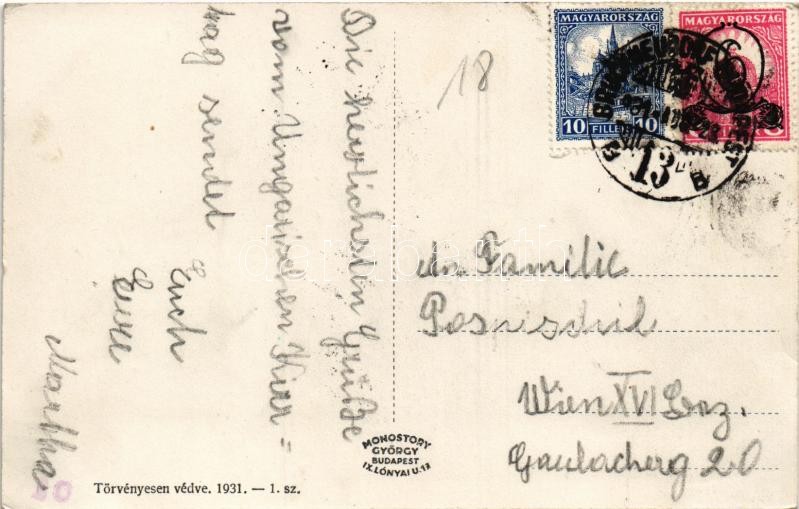 Die herzlichsten Grüße
vom Ungarischen Kirr=
tag sendet
Euch
Eure
Martha
18
MAGYARORSZÁG
10 FILLÉR 10
MAGYARORSZÁG
6
BUDAPEST
13
An Familie
Wien XVI Bez.
20
MONOSTORY
GYÖRGY
BUDAPEST
IX. LÓNYAI U. 13
Törvényesen védve. 1931. — 1. sz.
20
darabanth